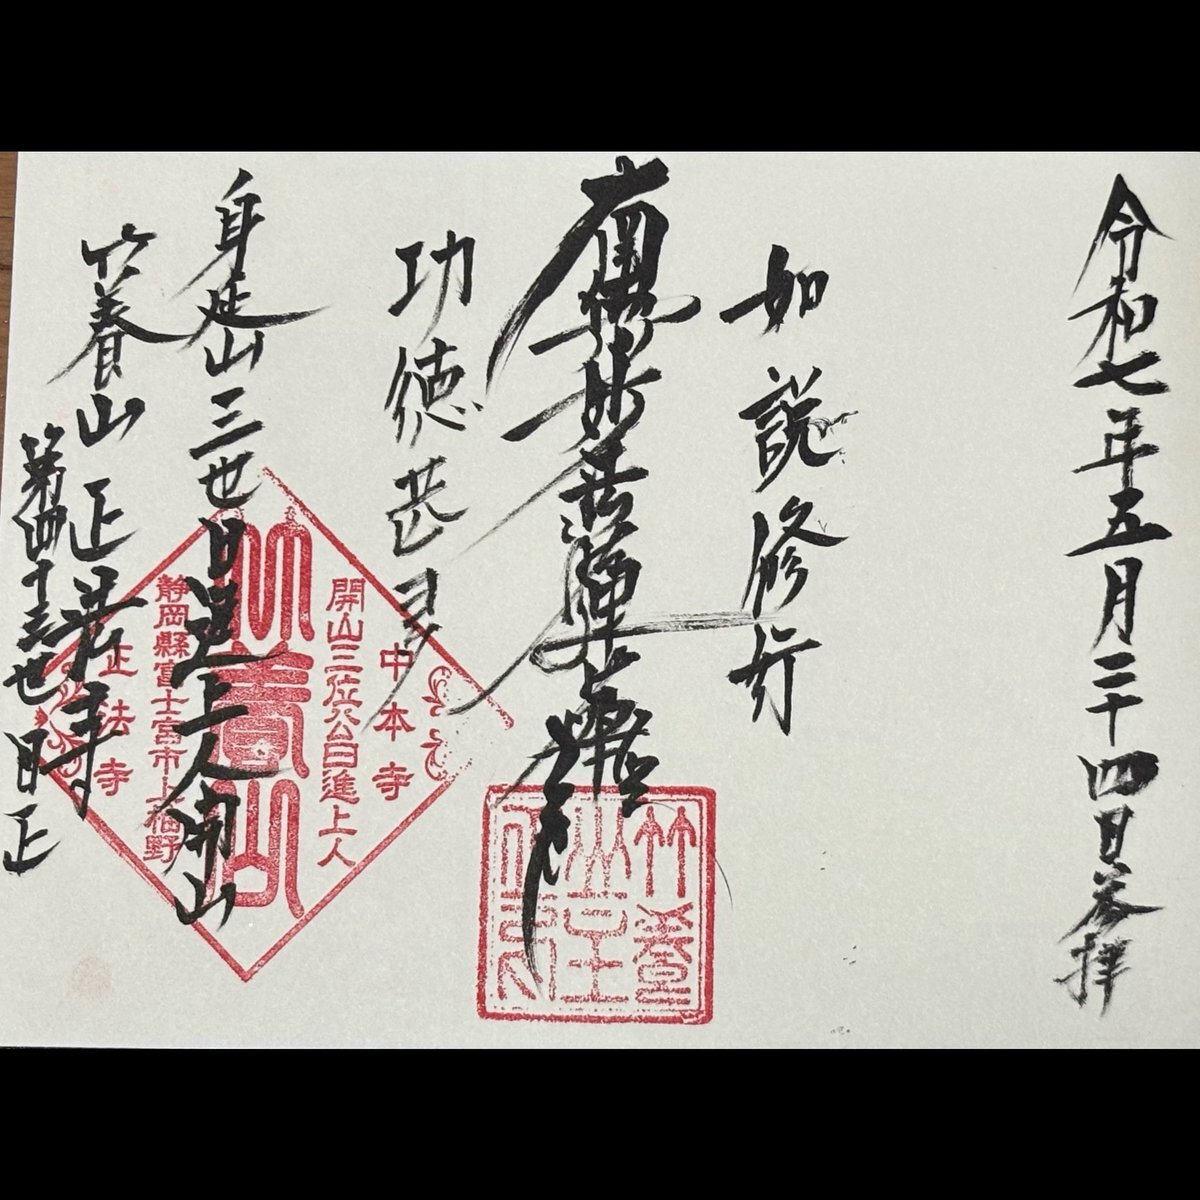 令和七年五月二十四日参拝
如説修行
南無妙法蓮華経
功徳甚多
身延山三世日進上人開山
竹養山正法寺
第四十三世日正
中本寺
開山三位公日進上人
竹養山
静岡縣富士宮市上柚野
正法寺